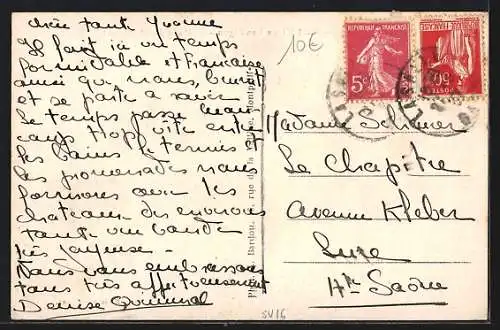 chère tante Yvonne
Il fait ici un temps
formidable et Française
ainsi que nous, brunit
et se porte à ravir
Le temps passe beau
coup trop vite entre
les bains le tennis et
les promenades nous
formons avec les
chateaux des environs
toute une bande
très joyeuse -
Nous vous embrassons
tous très affectueusement
Denise
10€
REPUBLIQUE FRANÇAISE
5c
50c
POSTES
Madame
Le Chapitre
Avenue Kléber
Lure
Hte Saône
SV16